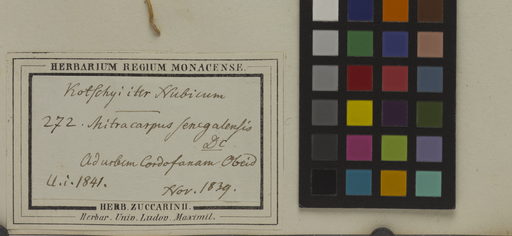 HERBARIUM REGIUM MONACENSE.
Kotschyi iter Nubicum
272. Mitracarpus senegalensis
DC
Ad urbem Cordofanam Obeid
U. i. 1841.
Nov. 1839.
HERB. ZUCCARINII.
Herbar. Univ. Ludov. Maximil.